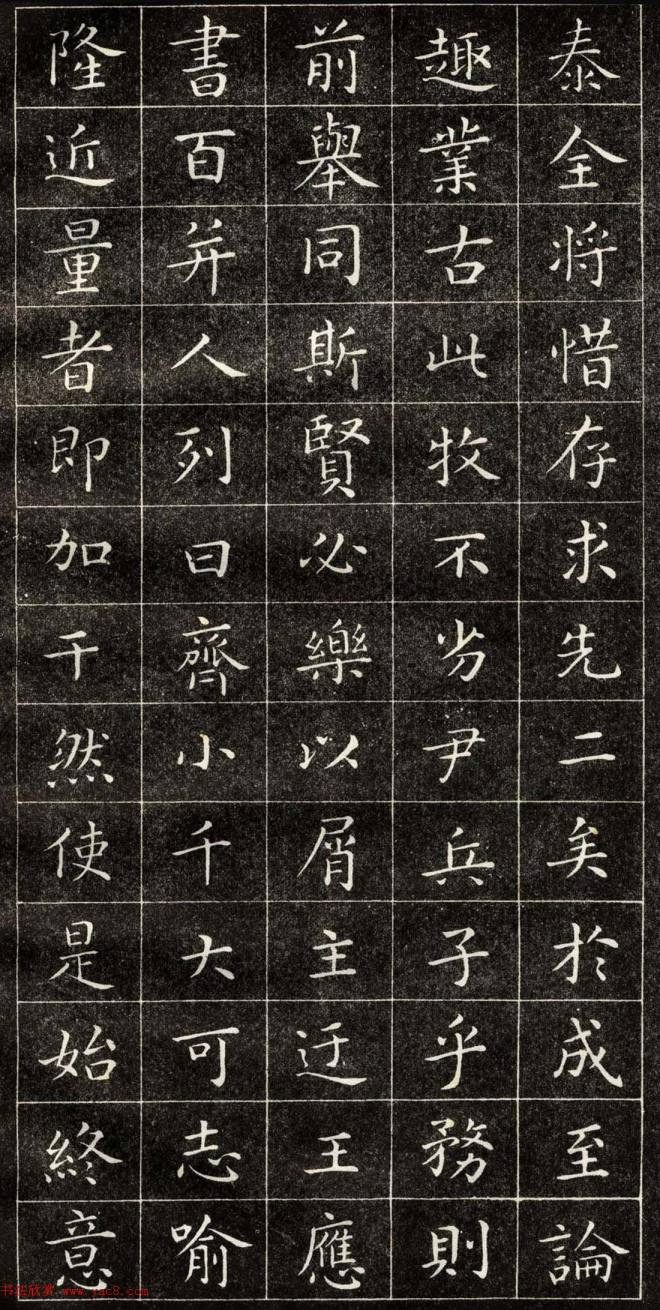 泰全將惜存求先二矣於成至論
趣業古此牧不劣尹兵子乎務則
前舉同斯賢必樂以屑主迂王應
書百并人列曰齊小千大可志喻
隆近量者即加干然使是始終意
书法欣赏 www.yac8.com